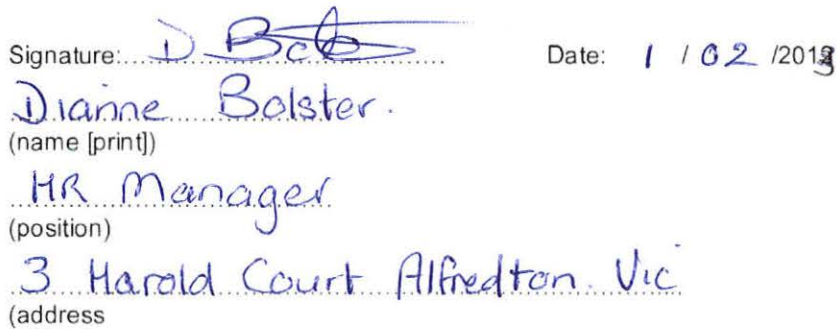 Signature: D Bols Date: 1 / 02 /2013
Dianne Bolster.
(name [print])
HR Manager
(position)
3 Harold Court Alfredton. Vic
(address